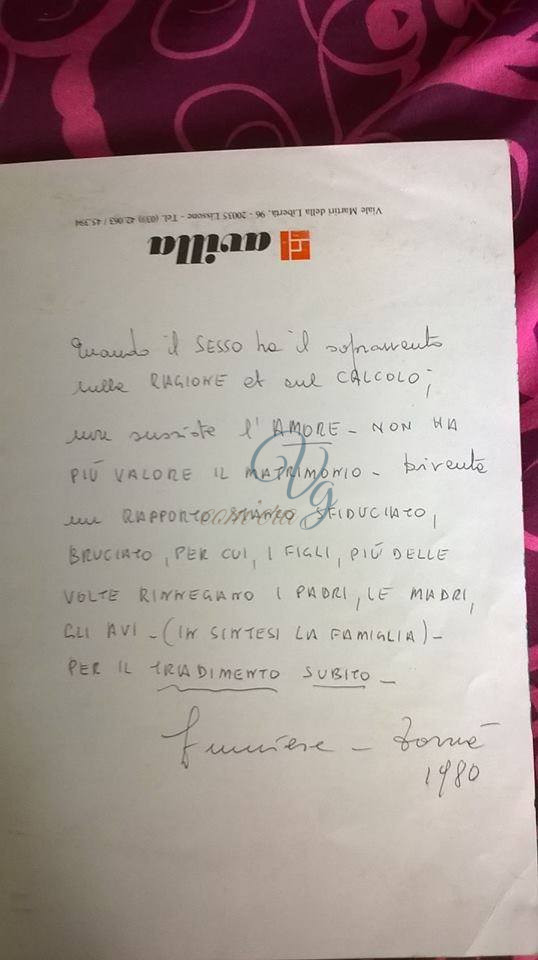 Viale Martiri della Libertà, 96 - 20035 Lissone - Tel. (039) 42.063 / 45.394
avilla
Quando il SESSO ha il sopravvento
sulla RAGIONE et sul CALCOLO;
non sussiste l'AMORE - NON HA
PIÚ VALORE IL MATRIMONIO - Diventa
un RAPPORTO STANCO SFIDUCIATO,
BRUCIATO, PER CUI, I FIGLI, PIÚ DELLE
VOLTE RINNEGANO I PADRI, LE MADRI,
GLI AVI - (IN SINTESI LA FAMIGLIA) -
PER IL TRADIMENTO SUBITO -
1980
Vg